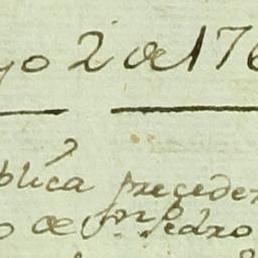 yo 2 de 176
blica precede
o de Sr. Pedro